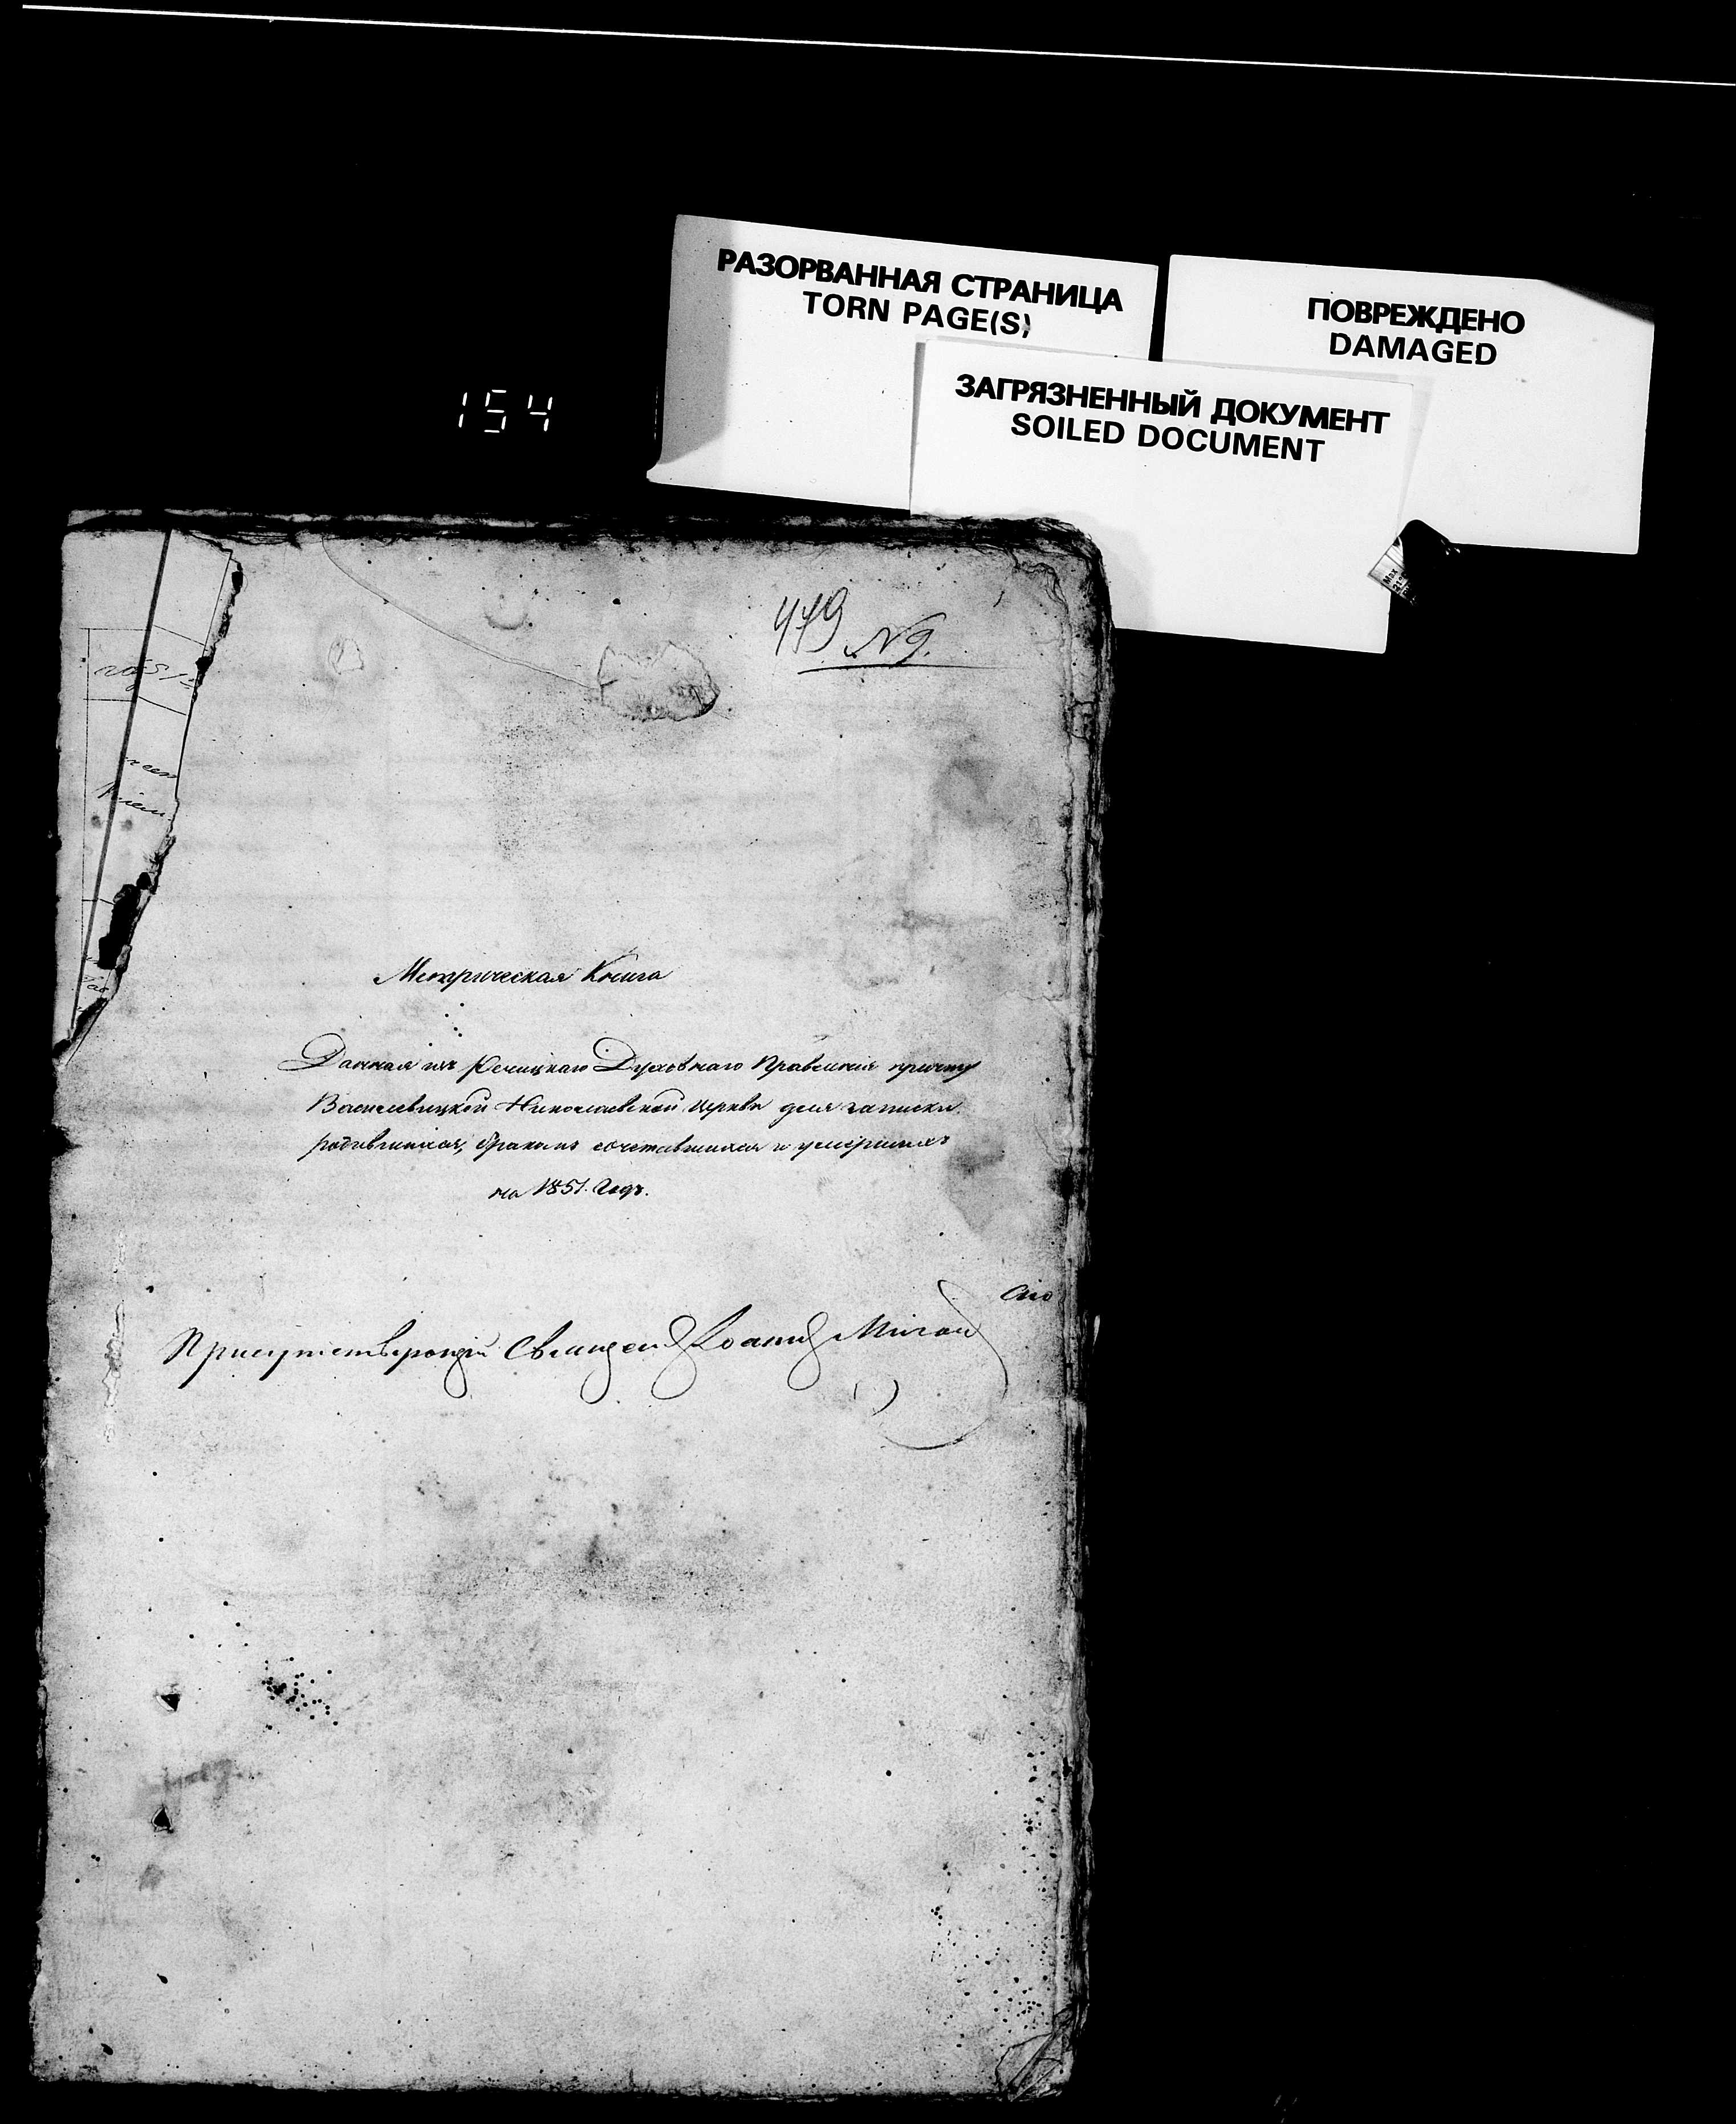 РАЗОРВАННАЯ СТРАНИЦА
TORN PAGE(S)
ПОВРЕЖДЕНО
DAMAGED
ЗАГРЯЗНЕННЫЙ ДОКУМЕНТ
SOILED DOCUMENT
154
479 N 9.
Метрическая Книга
Данная изъ Речицкаго Духовнаго Правленія причту
Василевицкой Николаевской церкви для записки
родившихся, бракомъ сочетавшихся и умершихъ
на 1851. Годъ.
Присутствующій Священ Іоаннъ